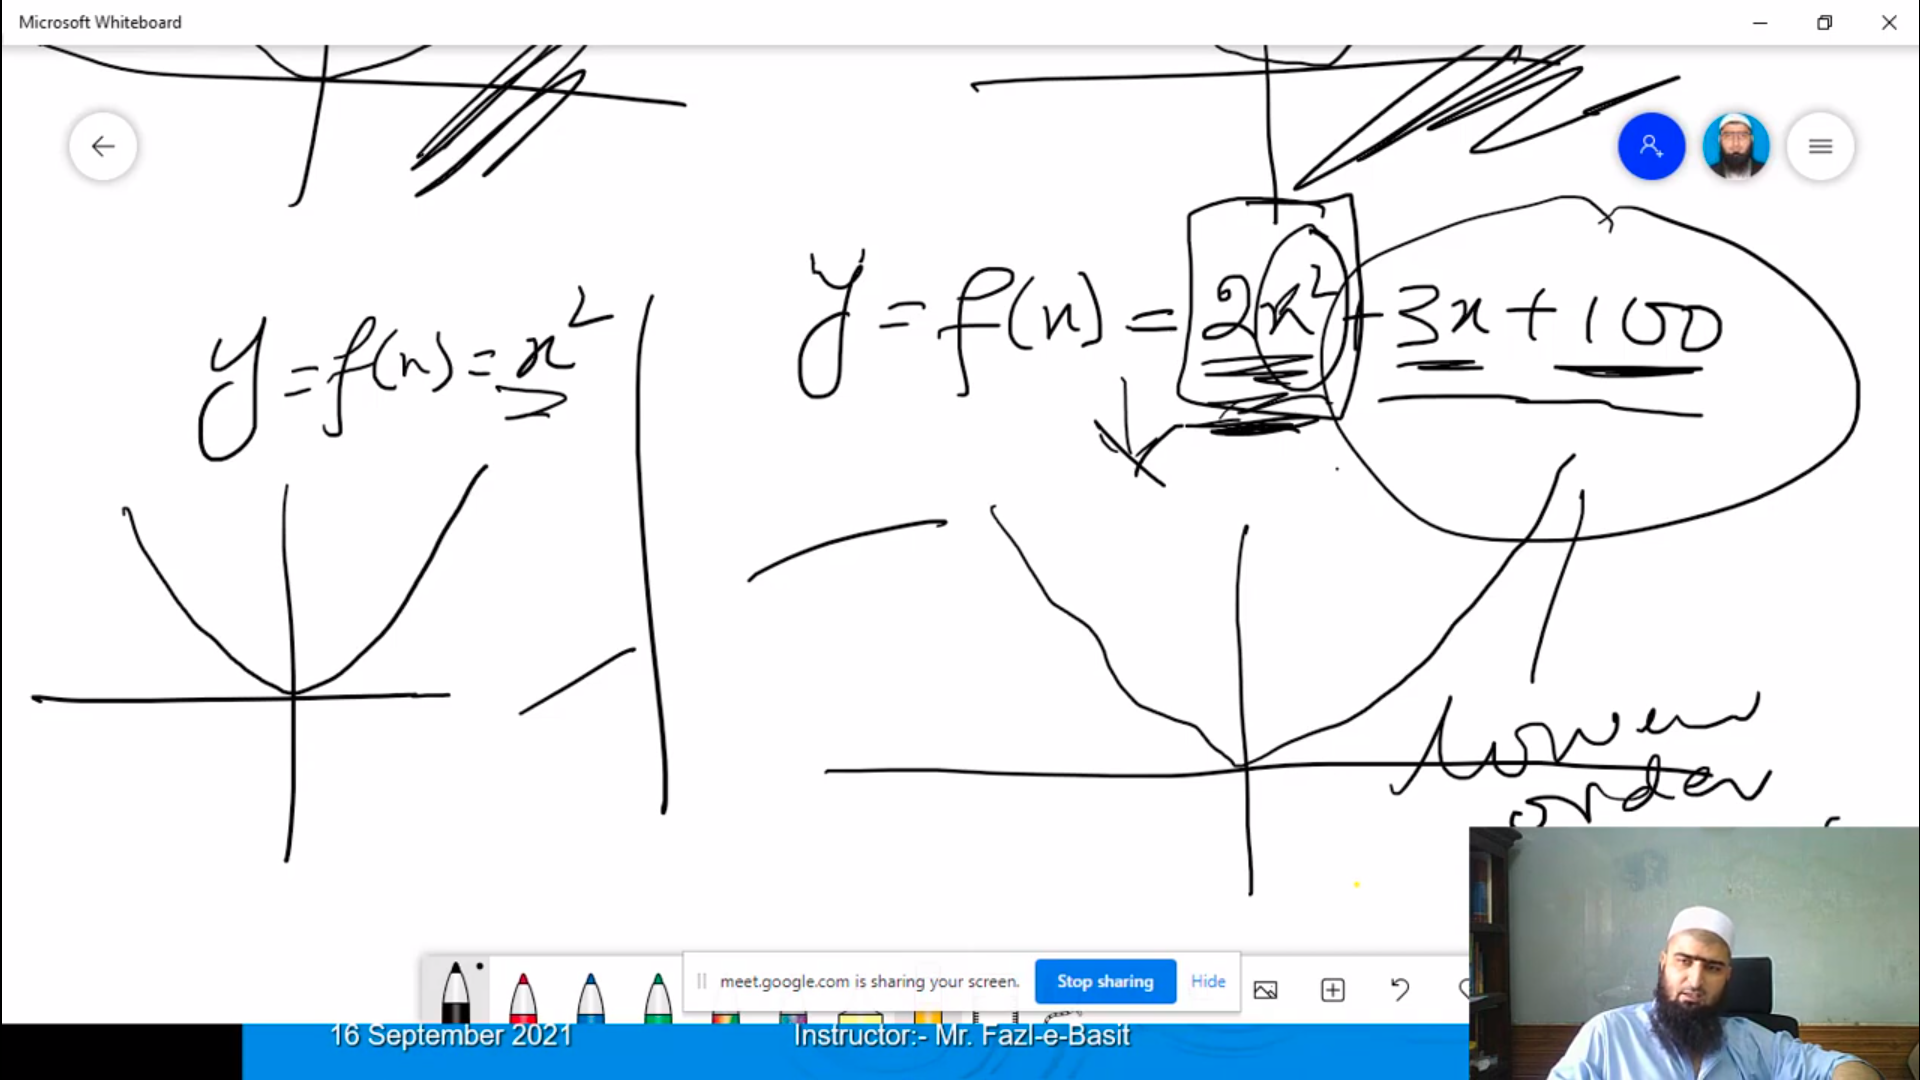 Microsoft Whiteboard
y = f(x) = x²
y = f(x) = 2x² + 3x + 100
lower
order
meet.google.com is sharing your screen.
Stop sharing
Hide
16 September 2021
Instructor:- Mr. Fazl-e-Basit